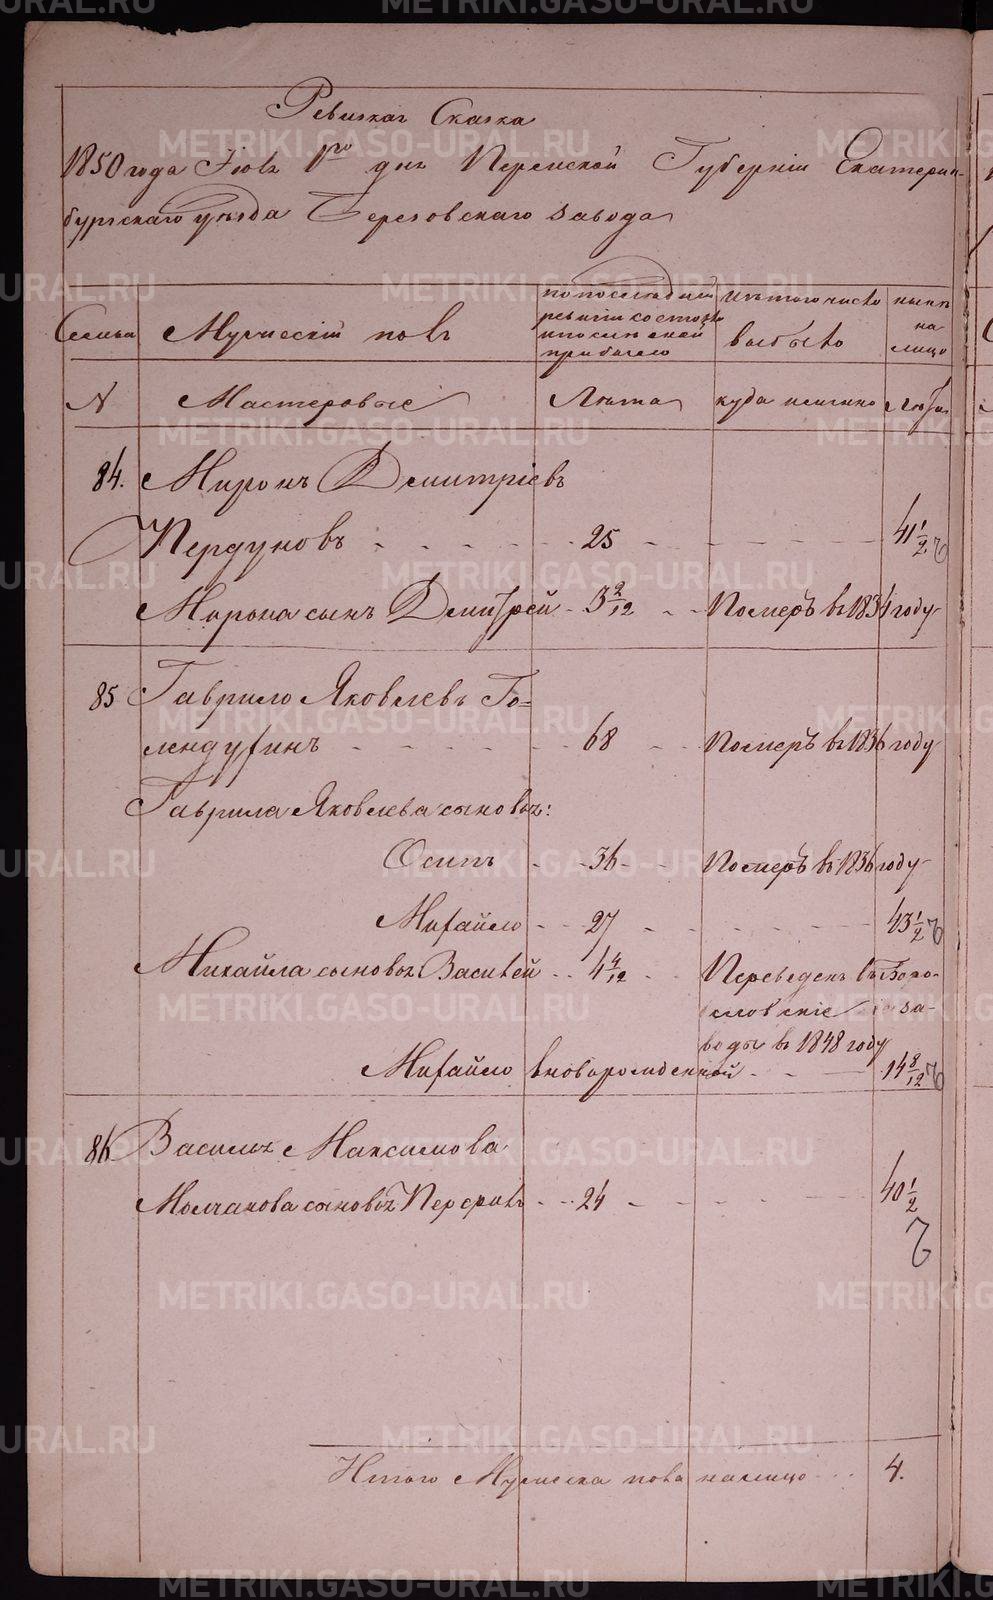 Ревизкая Сказка
1850 года Іюля 1го дня Пермской Губерніи Екатерин-
бургскаго уѣзда Березовскаго завода
Семьи
Мужескій полъ
по последней
ревизіи состояло
и после оной
прибыло
изъ того числа
выбыло
нынѣ
на
лицо
N
Мастеровые
Лѣта
куда именно
Лѣта
84. Миронъ Дмитріевъ
Пердуновъ 25 41 1/2
Мирона сынъ Дмитрей 3 9/12 Померъ въ 1834 году
85 Гаврило Яковлевъ Го=
лендухинъ 68 Померъ въ 1836 году
Гаврила Яковлева сыновья:
Осипъ 36 Померъ въ 1836 году
Михайло 27 43 1/2
Михайла сыновья Василей 4 4/12 Переведенъ въ Бого-
словскіе за-
воды въ 1848 году
Михайло вноворожденной 14 8/12
86 Василья Максимова
Молчанова сыновья 24 40 1/2
Итого Мужеска пола налицо 4.
METRIKI.GASO-URAL.RU